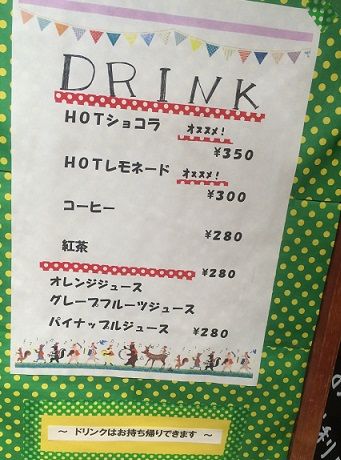 DRINK
HOTショコラ オススメ!
¥350
HOTレモネード オススメ!
¥300
コーヒー
¥280
紅茶
¥280
オレンジジュース
グレープフルーツジュース
パイナップルジュース ¥280
～ ドリンクはお持ち帰りできます ～